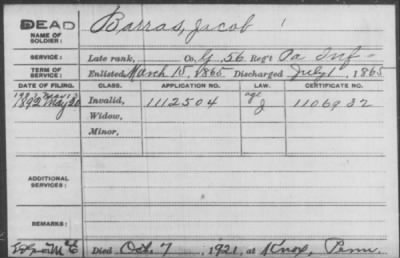 DEAD
NAME OF SOLDIER:
Barras, Jacob
SERVICE:
Late rank, Co. G. 56 Reg't Pa Inf
TERM OF SERVICE:
Enlisted March 15, 1865 Discharged July 1, 1865
DATE OF FILING. CLASS. APPLICATION NO. LAW. CERTIFICATE NO.
1892 May 20 Invalid, 1112504 age J 1106982
Widow,
Minor,
ADDITIONAL SERVICES:
REMARKS:
Died Oct. 7, 1921, at Knox, Penn.